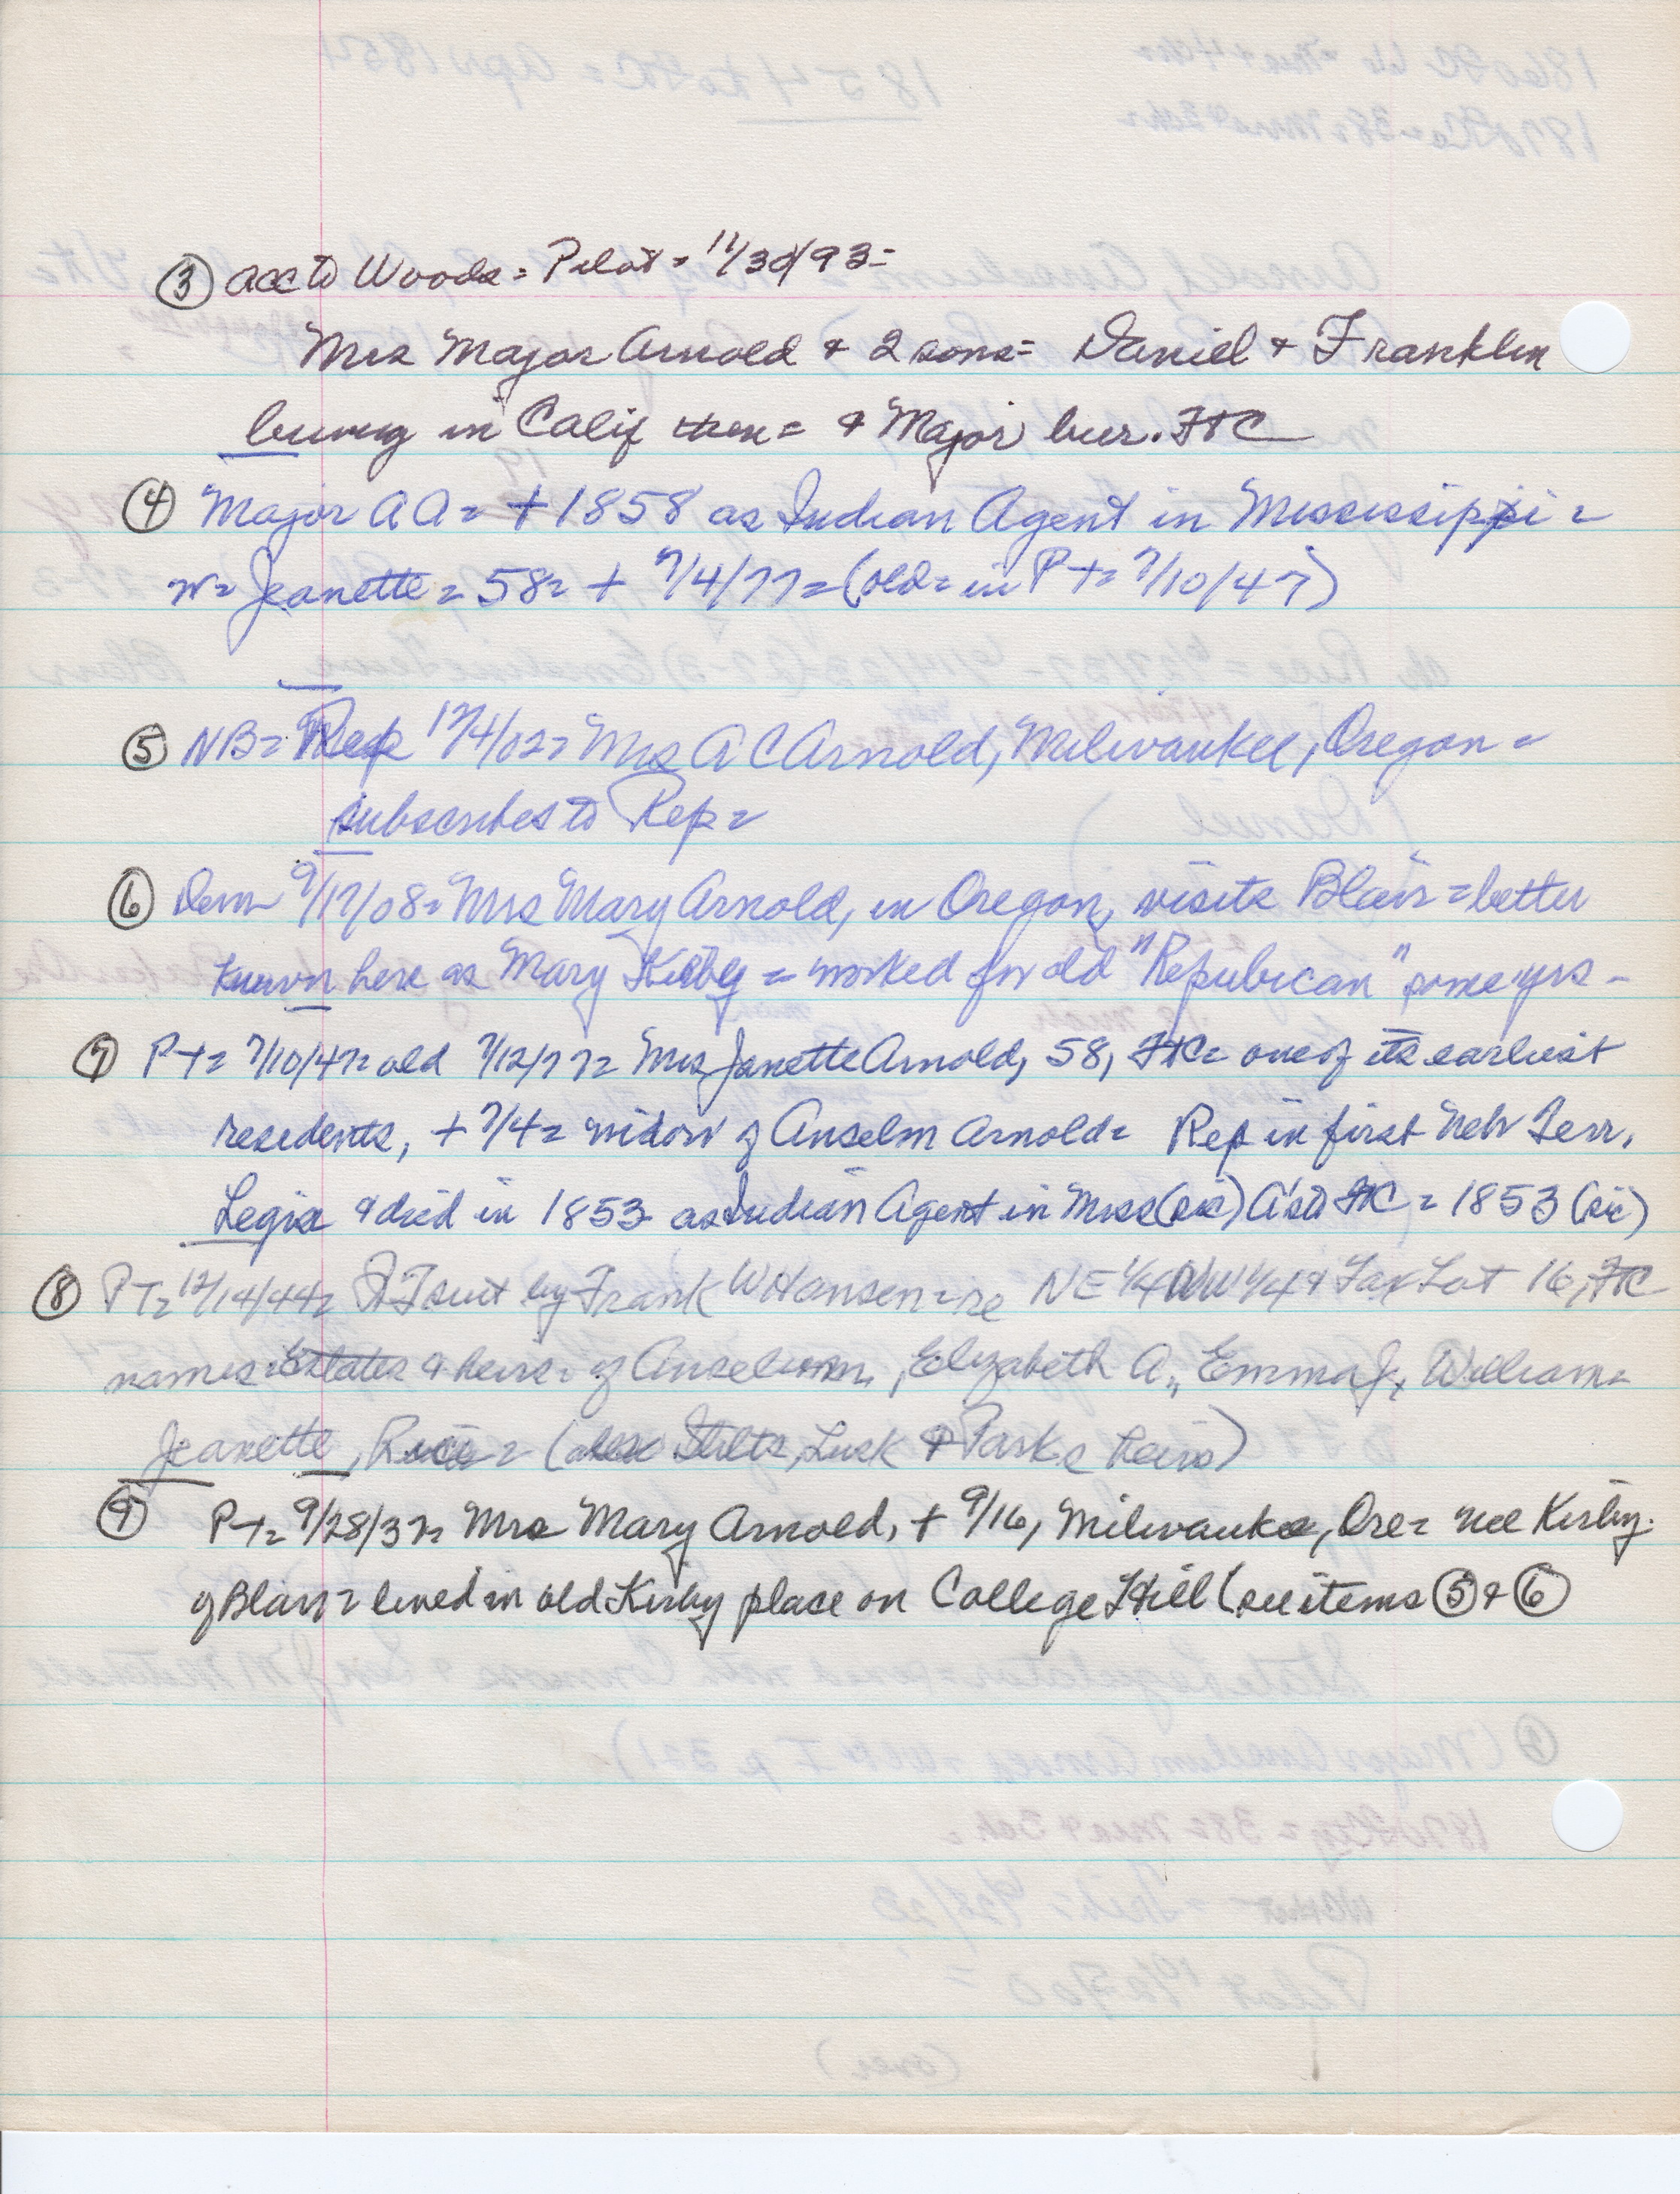 ③ acc to Woods = Pilot = 11/30/93 =
Mrs Major Arnold & 2 sons = Daniel & Franklin
living in Calif then = & Major bur. FtC
④ Major AA = + 1858 as Indian Agent in Mississippi =
w = Jeanette = 58 = + 7/4/77 = (old = in PT = 7/10/47)
⑤ NB = Rep 12/4/02 = Mrs A C Arnold, Milwaukee, Oregon =
subscribes to Rep =
⑥ Dem 9/17/08 = Mrs Mary Arnold, in Oregon, visits Blair = better
known here as Mary Kirby = worked for old "Republican" some yrs -
⑦ PT = 7/10/47 = old 7/12/77 = Mrs Janette Arnold, 58, FtC = one of its earliest
residents, + 7/4 = widow of Anselm Arnold = Rep in first Neb Terr.
Legis & died in 1853 as Indian Agent in Miss (sic) A's to FtC = 1853 (sic)
⑧ PT = 12/14/44 = QT suit by Frank W Hansen = re NE 1/4 NW 1/4 & Tax Lot 16, FtC
names Estates & heirs = of Anselm, Elizabeth A., Emma J, William =
Jeanette, Rice = (also Stilts, Lusk & Parks heirs)
⑨ PT = 9/28/32 = Mrs Mary Arnold, + 9/16, Milwaukee, Ore = nee Kirby
of Blair = lived in old Kirby place on College Hill (see items ⑤ & ⑥